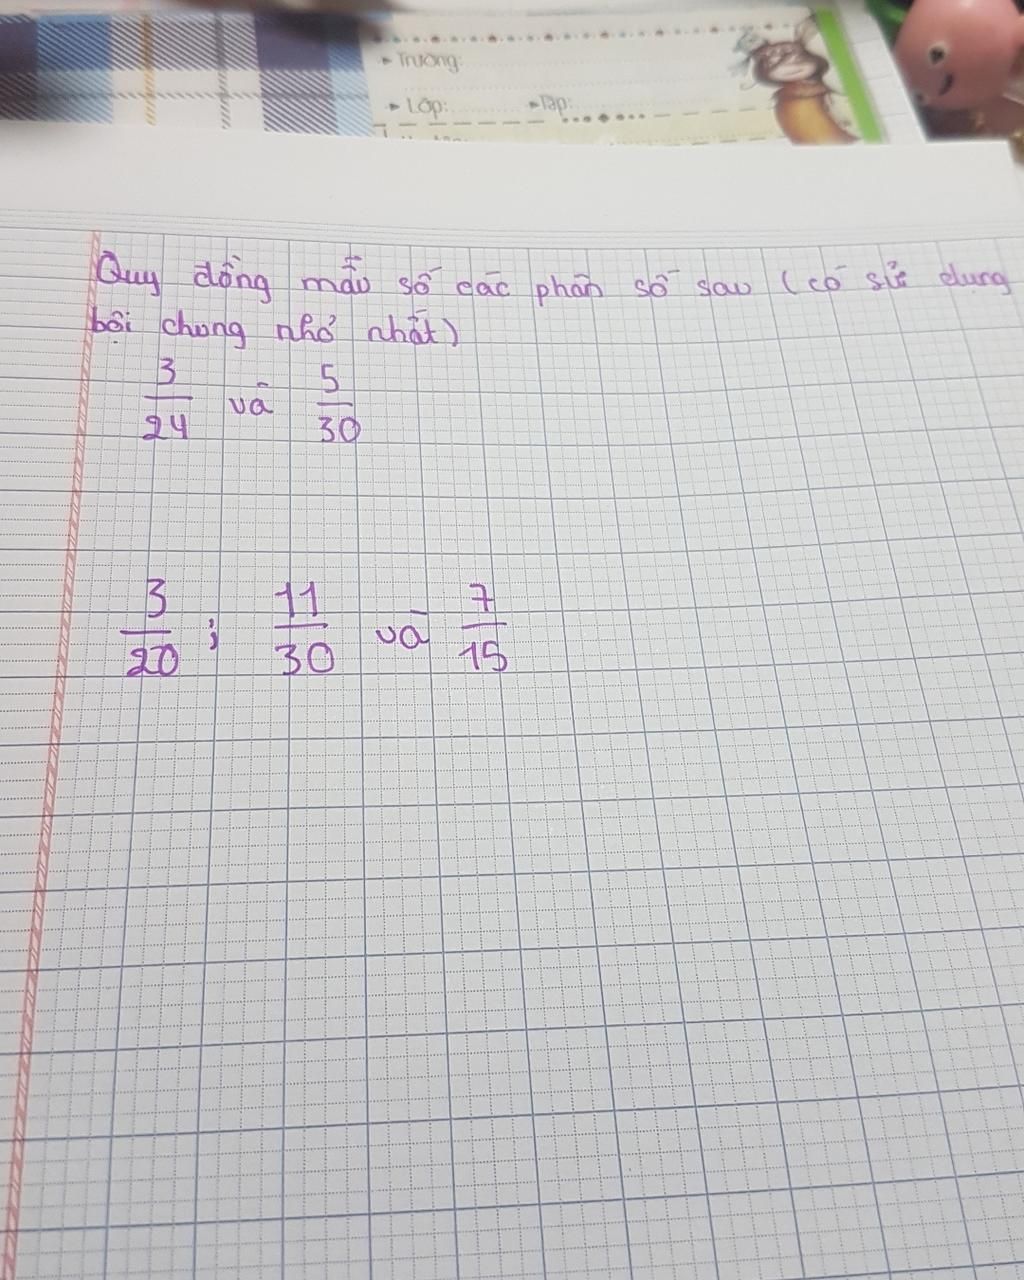 ▸ Trường:
▸ Lớp: ▸ Tập:
Quy đồng mẫu số các phân số sau (có sử dụng
bội chung nhỏ nhất)
3/24 và 5/30
3/20 ; 11/30 và 7/15